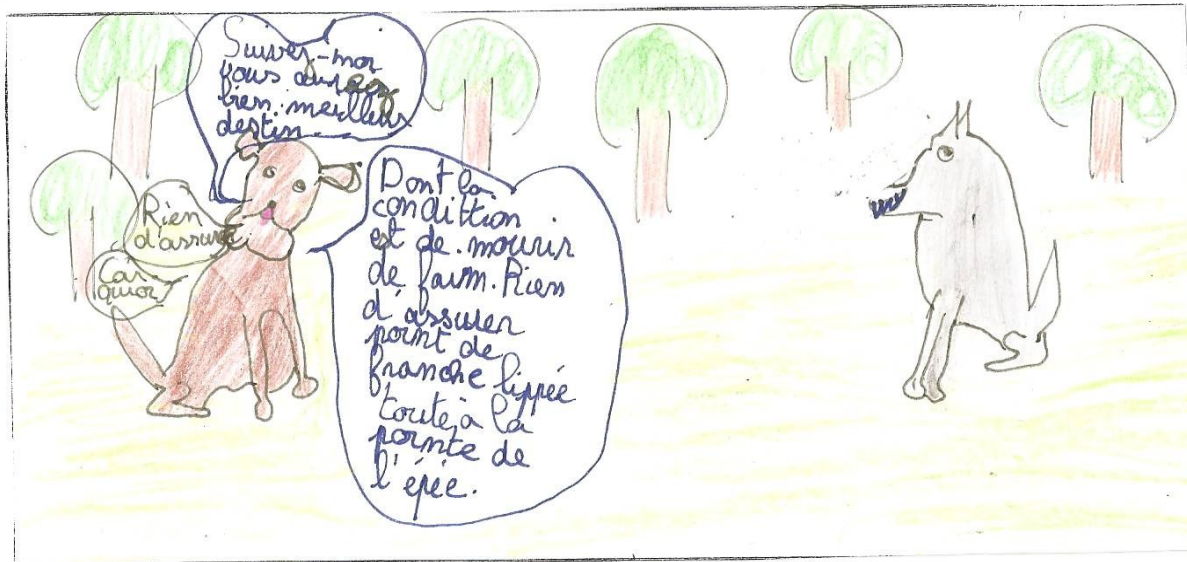 Suivez-moi
vous aurez
bien meilleur
destin.
Rien
d'assuré
Car
quoi
Dont la
condittion
est de mourir
de faim. Rien
d'assurer
point de
franche lippée
toute à la
pointe de
l'épée.